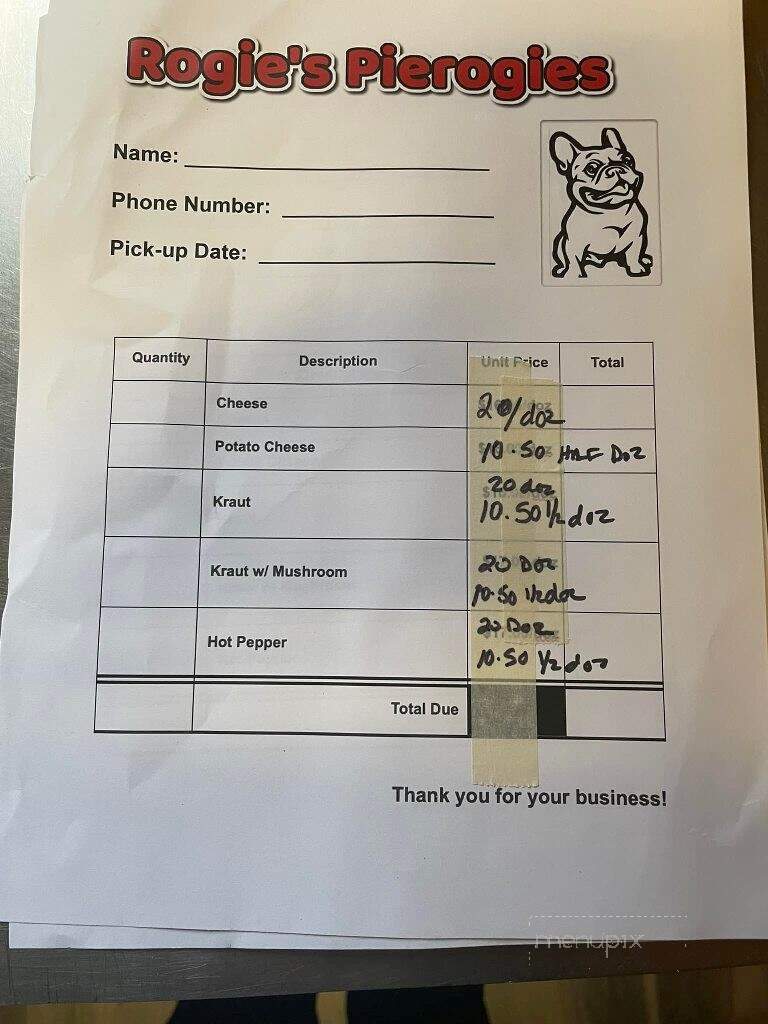 Rogie's Pierogies
Name:
Phone Number:
Pick-up Date:
Quantity Description Unit Price Total
Cheese 20/doz
Potato Cheese 10.50 HALF DOZ
Kraut 20 doz
10.50 1/2 doz
Kraut w/ Mushroom 20 DOZ
10.50 1/2 doz
Hot Pepper 20 DOZ
10.50 1/2 doz
Total Due
Thank you for your business!
menupix